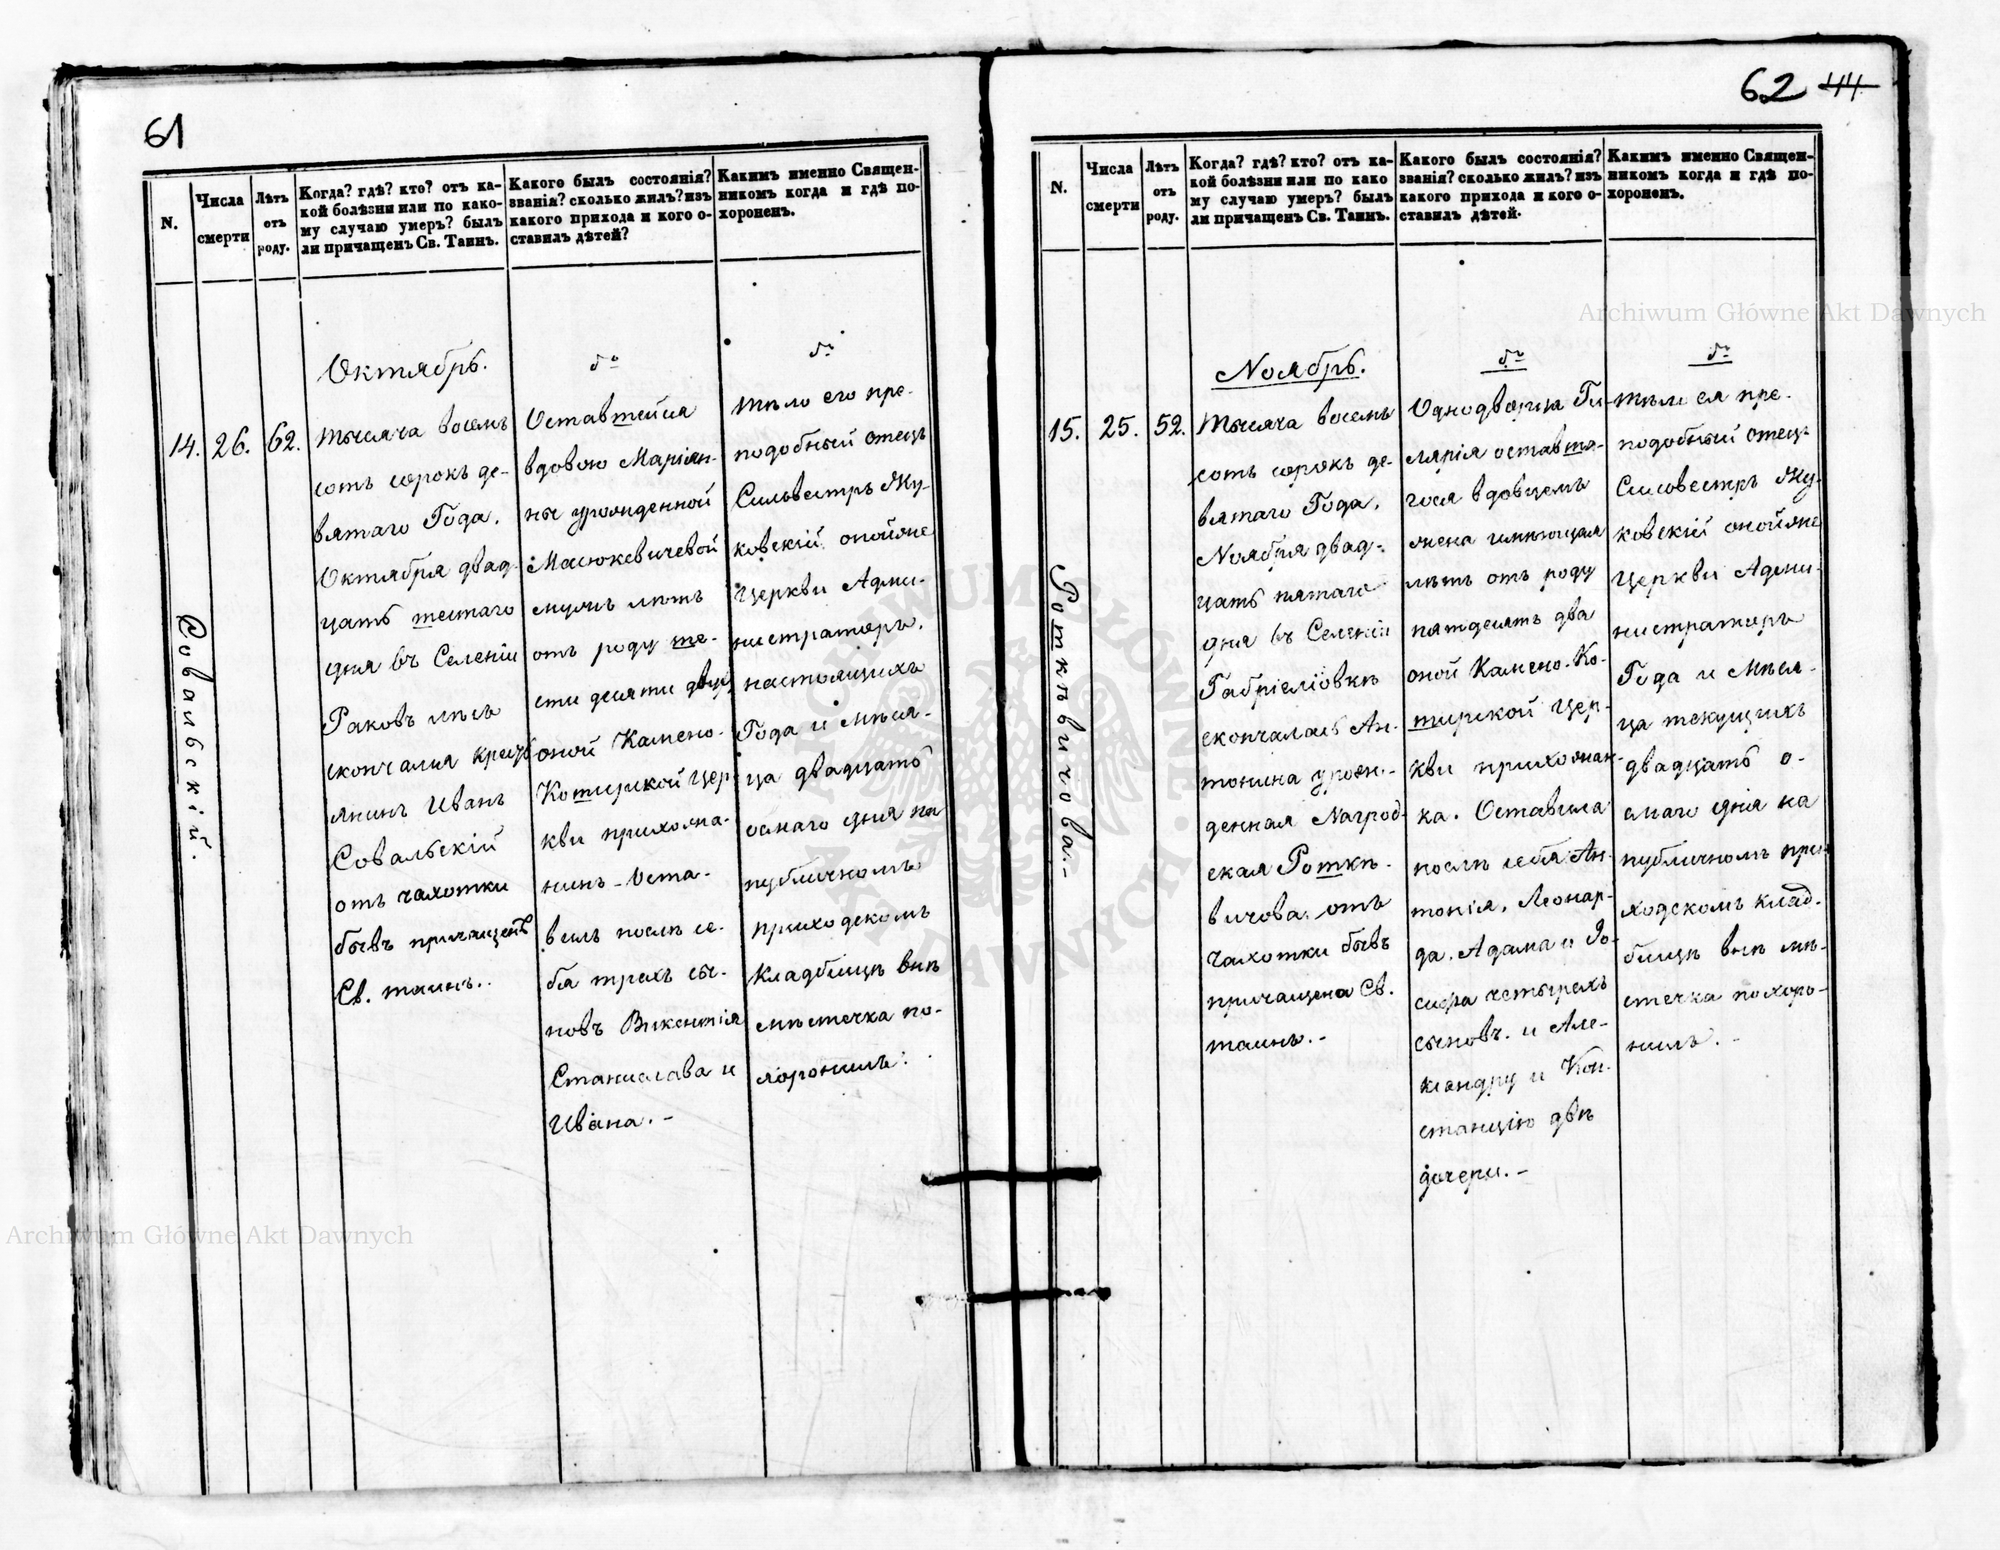 61
N.
Числа смерти
Лѣтъ отъ роду.
Когда? гдѣ? кто? отъ ка-
кой болѣзни или по како-
му случаю умеръ? былъ
ли причащенъ Св. Таинъ.
Какого былъ состоянія?
званія? сколько жилъ? изъ
какого прихода и кого о-
ставилъ дѣтей?
Какимъ именно Священ-
никомъ когда и гдѣ по-
хороненъ.
14.
26.
62.
Совальскій.
Октябрь.
тысяча восемь
сотъ сорокъ де-
вятаго Года,
Октября двад-
цать шестаго
дня въ Селеніи
Раковъ лѣсъ
скончался
Иванъ
Совальскій
отъ чахотки
бывъ причащенъ
Св. таинъ.
Оставшейся
вдовою Маріян-
ны урожденной
Масюкевичевой
мужъ лѣтъ
отъ роду ше-
сти десяти двух
оной Камено-
Коширской Цер-
кви прихожа-
нинъ - Оста-
вилъ послѣ се-
бя трехъ сы-
новъ Викентія
Станислава и
Ивана. -
тѣло его пре-
подобный отецъ
Сильвестръ Жу-
ковскій онойже
Церкви Адми-
нистраторъ,
настоящихъ
Года и мѣся-
ца двадцать
осмаго дня на
публичномъ
приходскомъ
кладбищѣ внѣ
мѣстечка по-
хоронилъ.
62 44
N.
Числа смерти
Лѣтъ отъ роду.
Когда? гдѣ? кто? отъ ка-
кой болѣзни или по како
му случаю умеръ? былъ
ли причащенъ Св. Таинъ.
Какого былъ состоянія?
званія? сколько жилъ? изъ
какого прихода и кого о-
ставилъ дѣтей.
Какимъ именно Священ-
никомъ когда и гдѣ по-
хороненъ.
15.
25.
52.
Роткѣвичова. -
Ноябрь.
Тысяча восемь
сотъ сорокъ де-
вятаго Года,
Ноября двад-
цать пятаго
дня въ Селеніи
Габріеліовкѣ
скончалась Ан-
тонина урож-
денная Нагрод-
ская Роткѣ-
вичова отъ
чахотки бывъ
причащена Св.
таинъ. -
Однодворца Ги-
лярія оставша-
гося вдовцемъ
жена имѣющая
лѣтъ отъ роду
пятдесятъ два
оной Камено-Ко-
ширской Цер-
кви прихожан-
ка. Оставила
послѣ себя Ан-
тонія, Леонар-
да, Адама и Іо-
сифа четырехъ
сыновъ. и Але-
ксандру и Кон-
станцію двѣ
дочери. -
тѣло ея пре-
подобный отецъ
Сильвестръ Жу-
ковскій онойже
Церкви Адми-
нистраторъ
Года и Мѣся-
ца текущихъ
двадцать о-
смаго дня на
публичномъ при-
ходскомъ клад-
бищѣ внѣ мѣ-
стечка похоро-
нилъ. -
Archiwum Główne Akt Dawnych
Archiwum Główne Akt Dawnych
ARCHIWUM GŁÓWNE AKT DAWNYCH